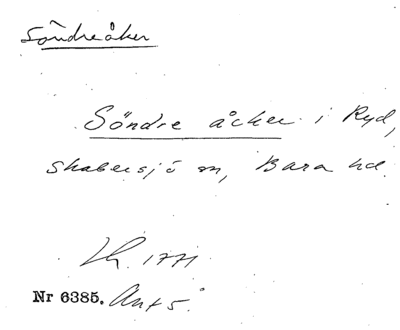 Söndreåker
Söndre åcker i Ryd,
Skabersjö sn, Bara hd.
Lh. 1771
Nr 6385. Ant 5.